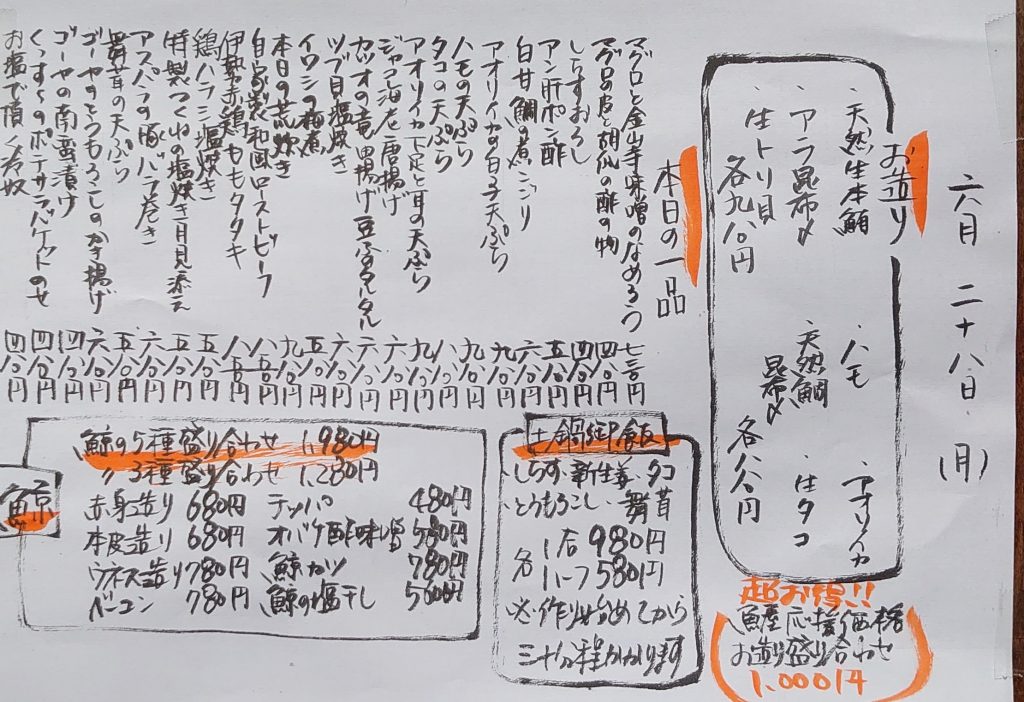 六月二十八日(月)
お造り
・天然生本鮪
・アラ昆布〆
・生トリ貝
各九八〇円
・ハモ
・天然鯛昆布〆
・アオリイカ
・生タコ
各八八〇円
超お得!!
魚屋応援価格
お造り盛り合わせ
1,000円
本日の一品
マグロと金山寺味噌のなめろう 七三〇円
マグロの皮と胡瓜の酢の物 四八〇円
しらすおろし 四八〇円
アン肝ポン酢 五八〇円
白甘鯛の煮こごり 六八〇円
アオリイカの白子天ぷら 九八〇円
ハモの天ぷら 九八〇円
タコの天ぷら 八八〇円
アオリイカ下足と耳の天ぷら 九八〇円
ジャコ海老唐揚げ 六八〇円
カツオの竜田揚げ豆ふタルタル 六八〇円
ツブ貝塩焼き 六八〇円
イワシの梅煮 五八〇円
本日の荒炊き 九八〇円
自家製和風ローストビーフ 八五〇円
伊勢赤鶏ももタタキ 八五〇円
鶏ハラミ塩焼き 五八〇円
特製つくねの塩焼き月見添え 五八〇円
アスパラの豚バラ巻き 六八〇円
舞茸の天ぷら 五八〇円
ゴーヤととうもろこしのかき揚げ 六八〇円
ゴーヤの南蛮漬け 四八〇円
くんすものポテサラバケットのせ 四八〇円
お塩で頂く冷奴 四八〇円
土鍋御飯
しらす・新生姜・タコ
とうもろこし・舞茸
各 1合 980円
ハーフ 580円
※作り始めてから
三十分程かかります
鯨
鯨の5種盛り合わせ 1,980円
〃3種盛り合わせ 1,280円
赤身造り 680円 テッパ 480円
本皮造り 680円 オバケ酢味噌 580円
ウネス造り 780円 鯨カツ 780円
ベーコン 780円 鯨の塩干し 500円